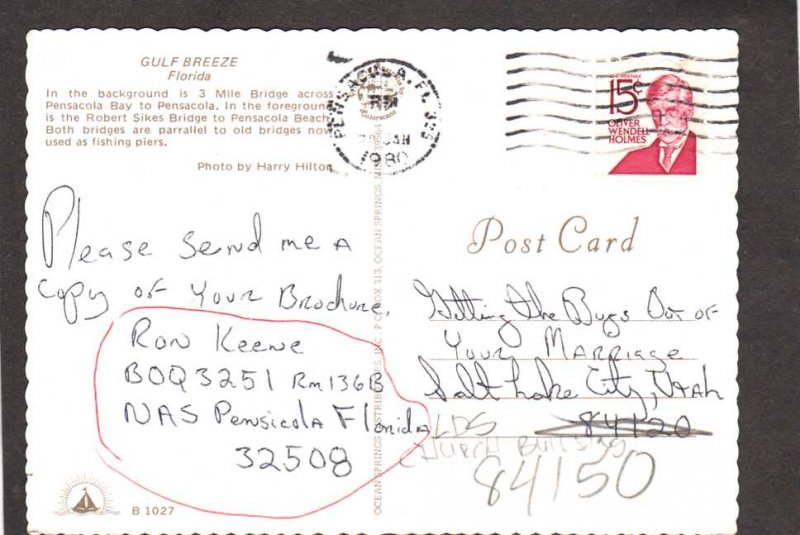 GULF BREEZE
Florida
In the background is 3 Mile Bridge across
Pensacola Bay to Pensacola. In the foreground
is the Robert Sikes Bridge to Pensacola Beach.
Both bridges are parrallel to old bridges now
used as fishing piers.
Photo by Harry Hilton
PENSACOLA, FL 325
JAN
1980
15¢
OLIVER
WENDELL
HOLMES
Post Card
Please send me a
copy of Your Brochure.
Ron Keene
BOQ 3251 Rm 136B
NAS Pensicola Florida
32508
Getting the Bugs Out of
Your Marriage
Salt Lake City, Utah
84120
LDS
CHURCH BUILDING
84150
B 1027
OCEAN SPRINGS DISTRIBUTORS, INC. P.O. BOX 313 OCEAN SPRINGS, MISS.